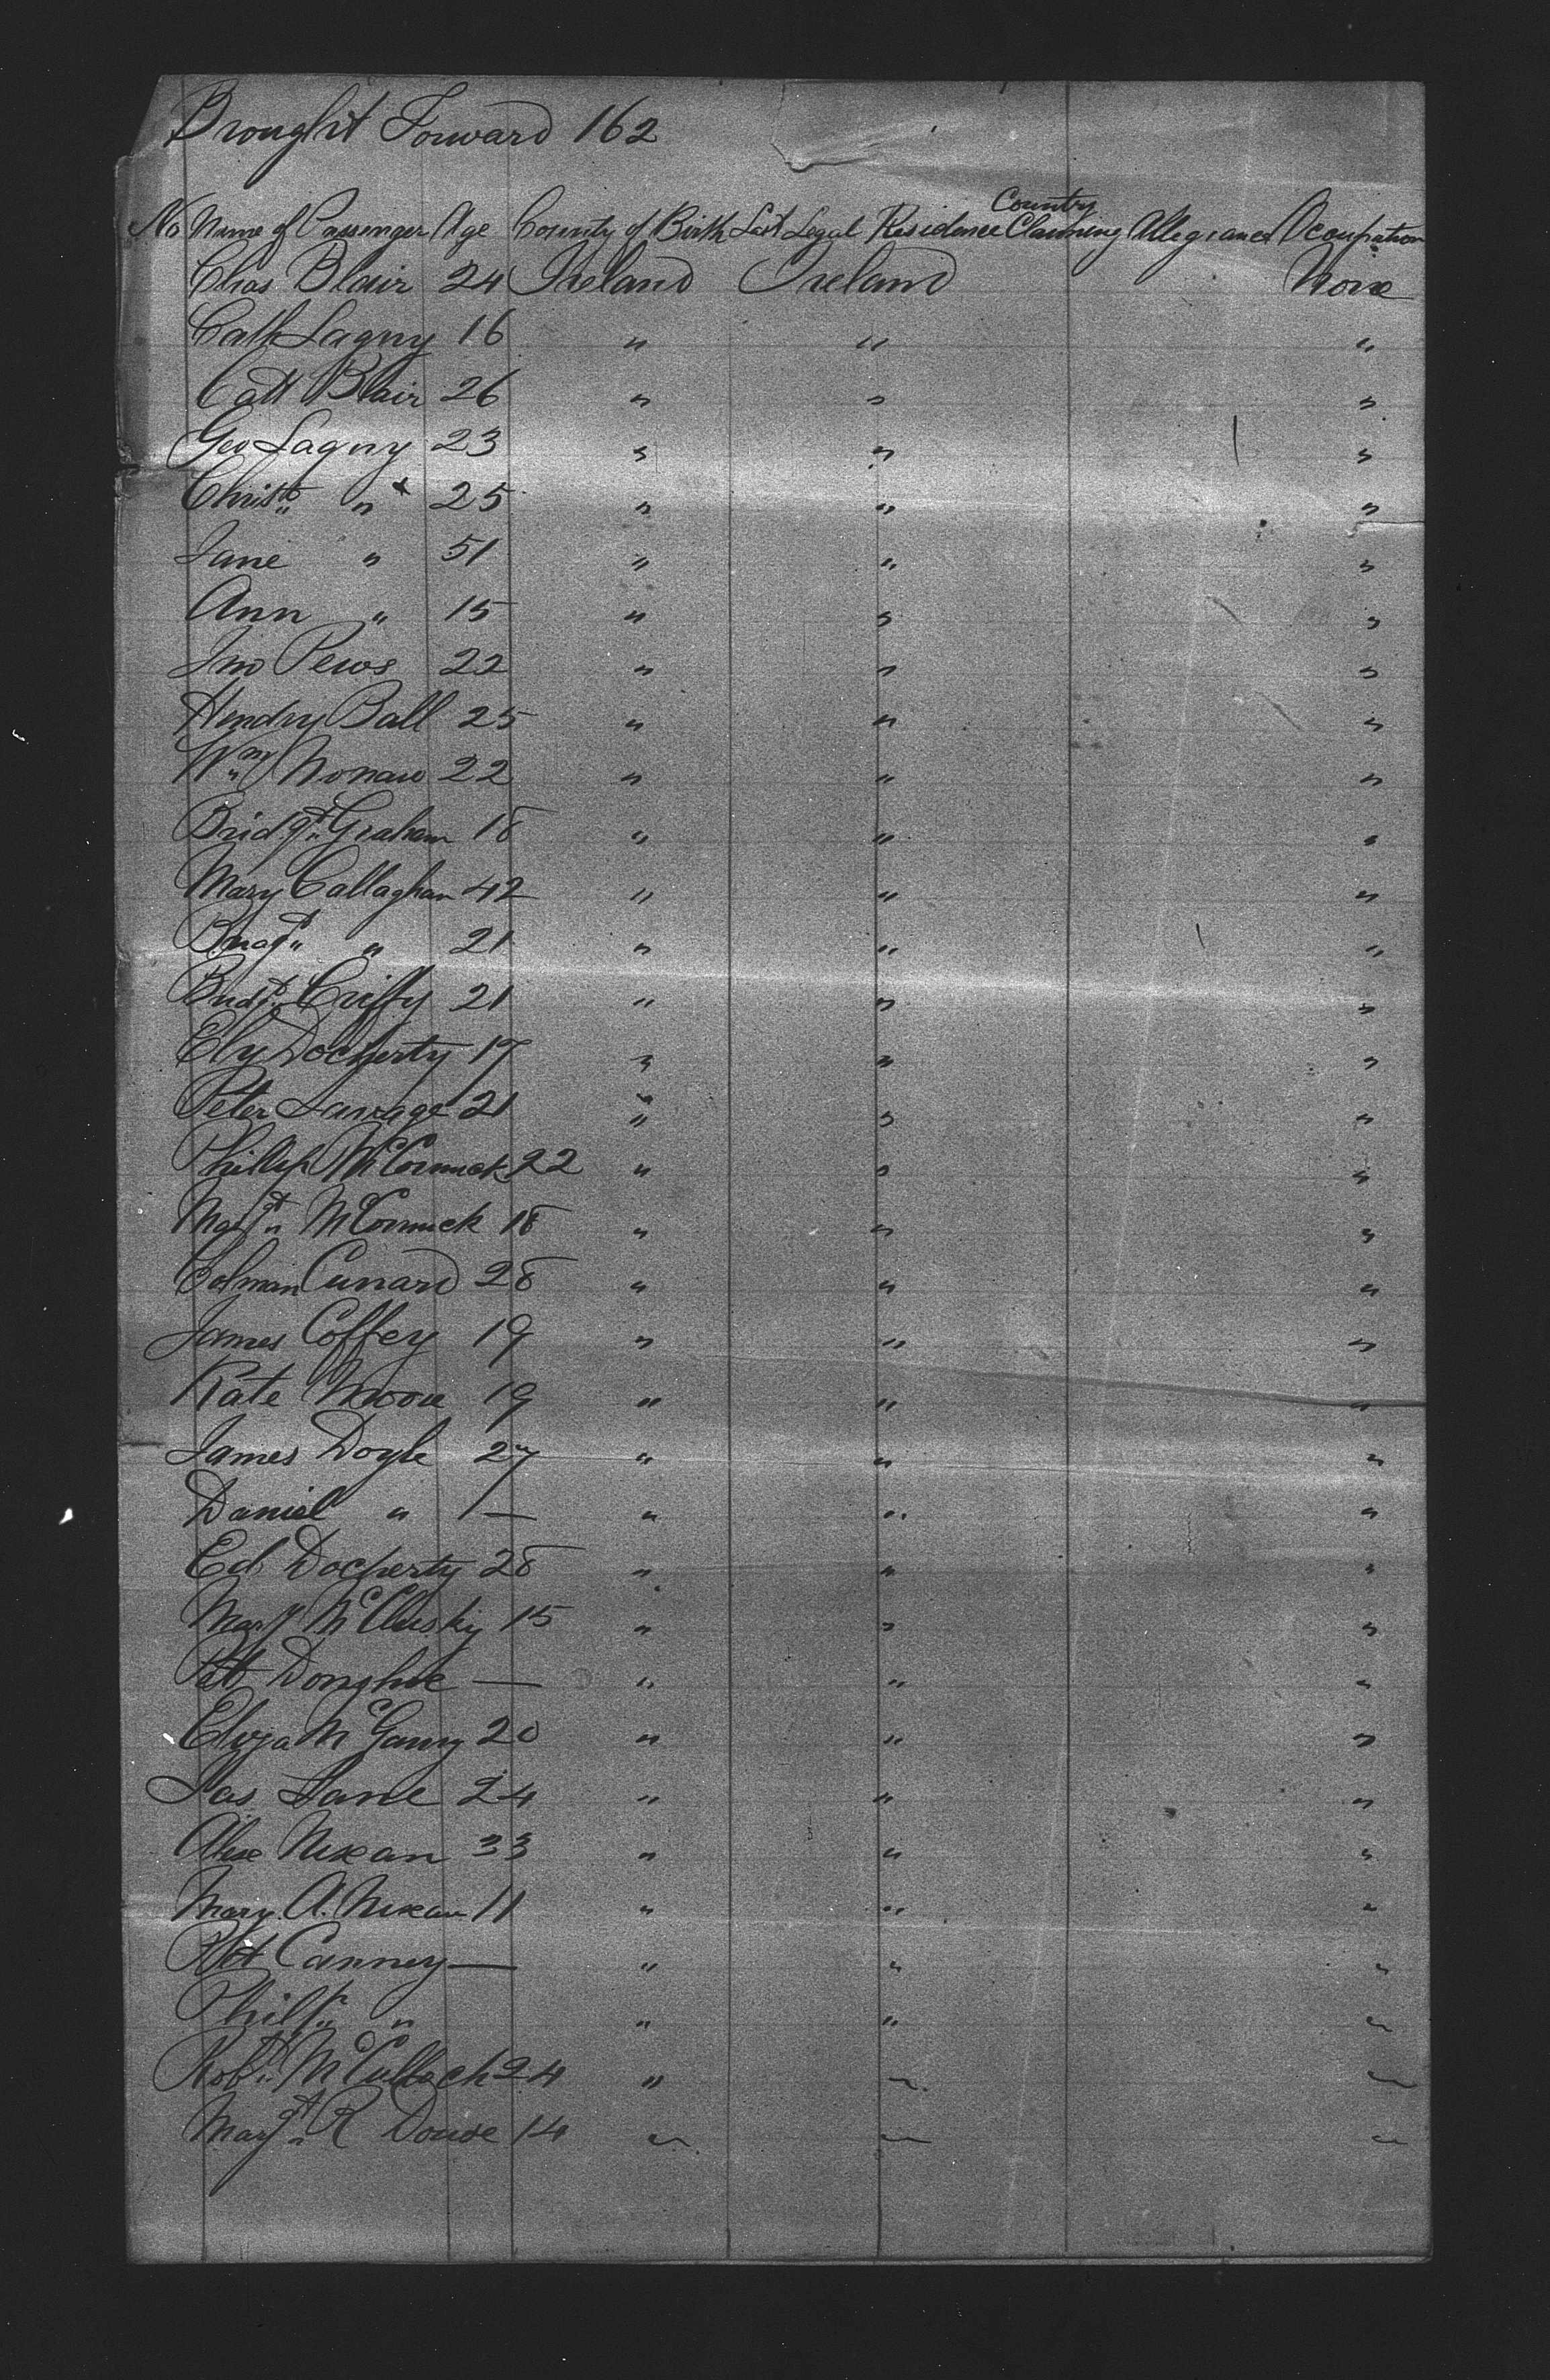 Brought Forward 162
No Name of Passenger Age County of Birth Last Legal Residence Country Claiming Allegiance Occupation
Chas Blair 24 Ireland Ireland None
Cath Lagny 16 " " "
Cath Blair 26 " " "
Geo Lagny 23 " " "
Christ " 25 " " "
Jane " 51 " " "
Ann " 15 " " "
Jno Pews 22 " " "
Hendry Ball 25 " " "
Wm 22 " " "
Bridgt Graham 18 " " "
Mary Callaghan 42 " " "
" 21 " " "
Bridgt 21 " " "
Ely Docherty 17 " " "
Peter 21 " " "
Phillip McCormick 22 " " "
Margt McCormick 18 " " "
Colman Cunard 28 " " "
James Coffey 19 " " "
Kate Moore 19 " " "
James Doyle 27 " " "
Daniel " 1 — " " "
Ed Docherty 28 " " "
Mary McClusky 15 " " "
Pat Donghue — " " "
Eliza 20 " " "
Jas Lane 24 " " "
Alex Nixan 33 " " "
Mary A. Nixan 11 " " "
Canney — " " "
Philp " " " "
Robt McCulloch 24 " " "
Margt R Douse 14 " " "